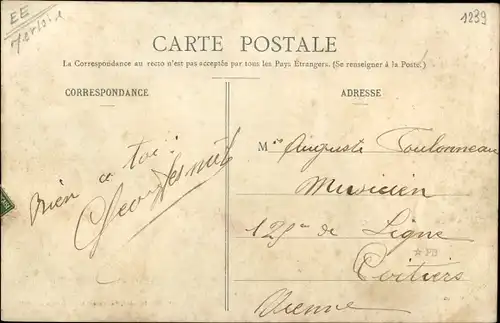 EE
1239
CARTE POSTALE
La Correspondance au recto n'est pas acceptée par tous les Pays Étrangers. (Se renseigner à la Poste.)
CORRESPONDANCE
ADRESSE
Bien a toi
M Auguste Toulonneau
Musicien
125me de Ligne
Poitiers
Vienne